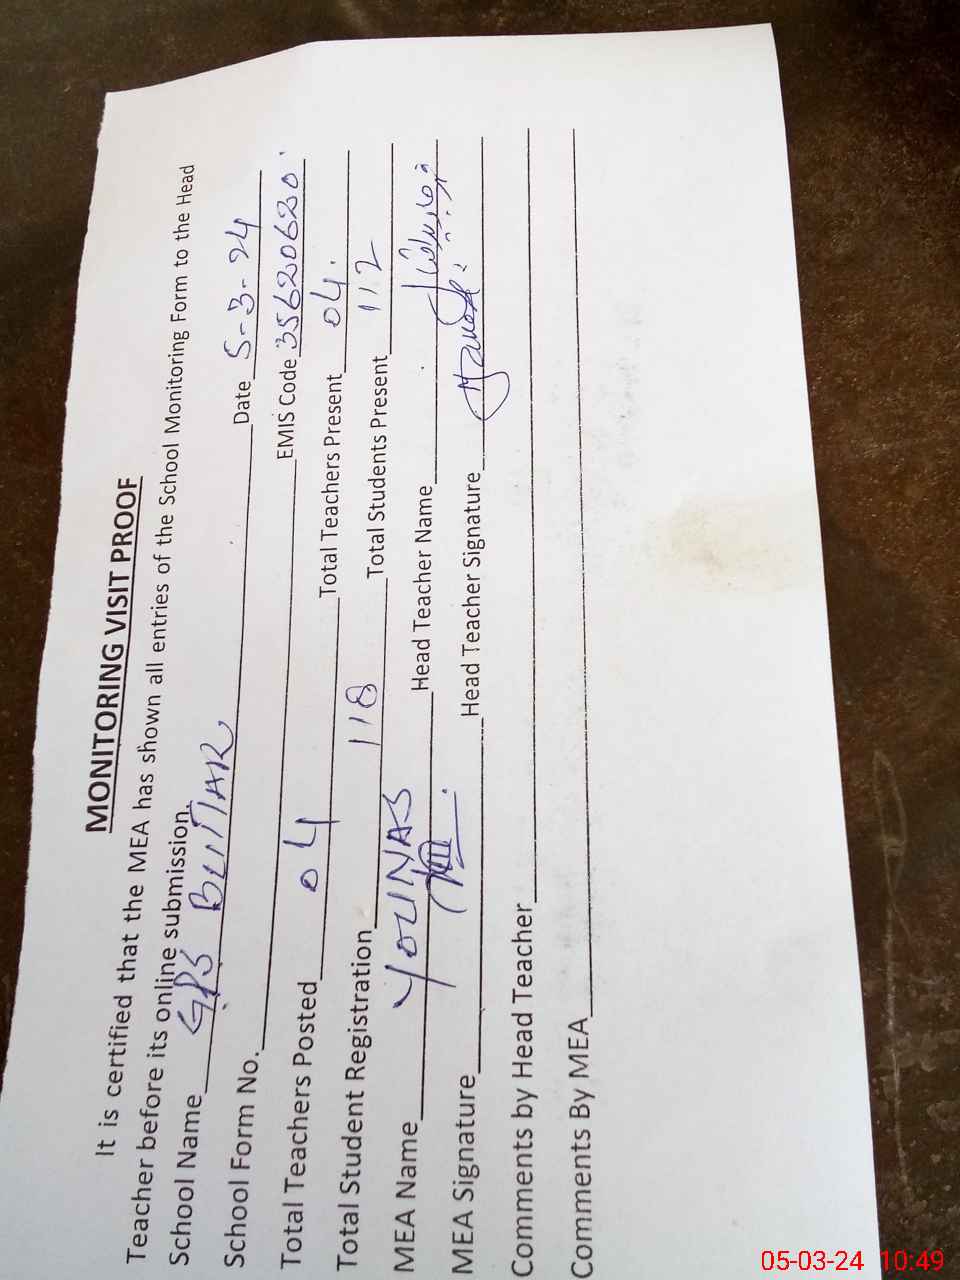 MONITORING VISIT PROOF
It is certified that the MEA has shown all entries of the School Monitoring Form to the Head
Teacher before its online submission.
School Name GPS BUTTAR Date 5-3-24
School Form No. EMIS Code 35620620
Total Teachers Posted 04 Total Teachers Present 04
Total Student Registration 118 Total Students Present 112
MEA Name YOUNAS Head Teacher Name
MEA Signature Head Teacher Signature
Comments by Head Teacher
Comments By MEA
05-03-24 10:49